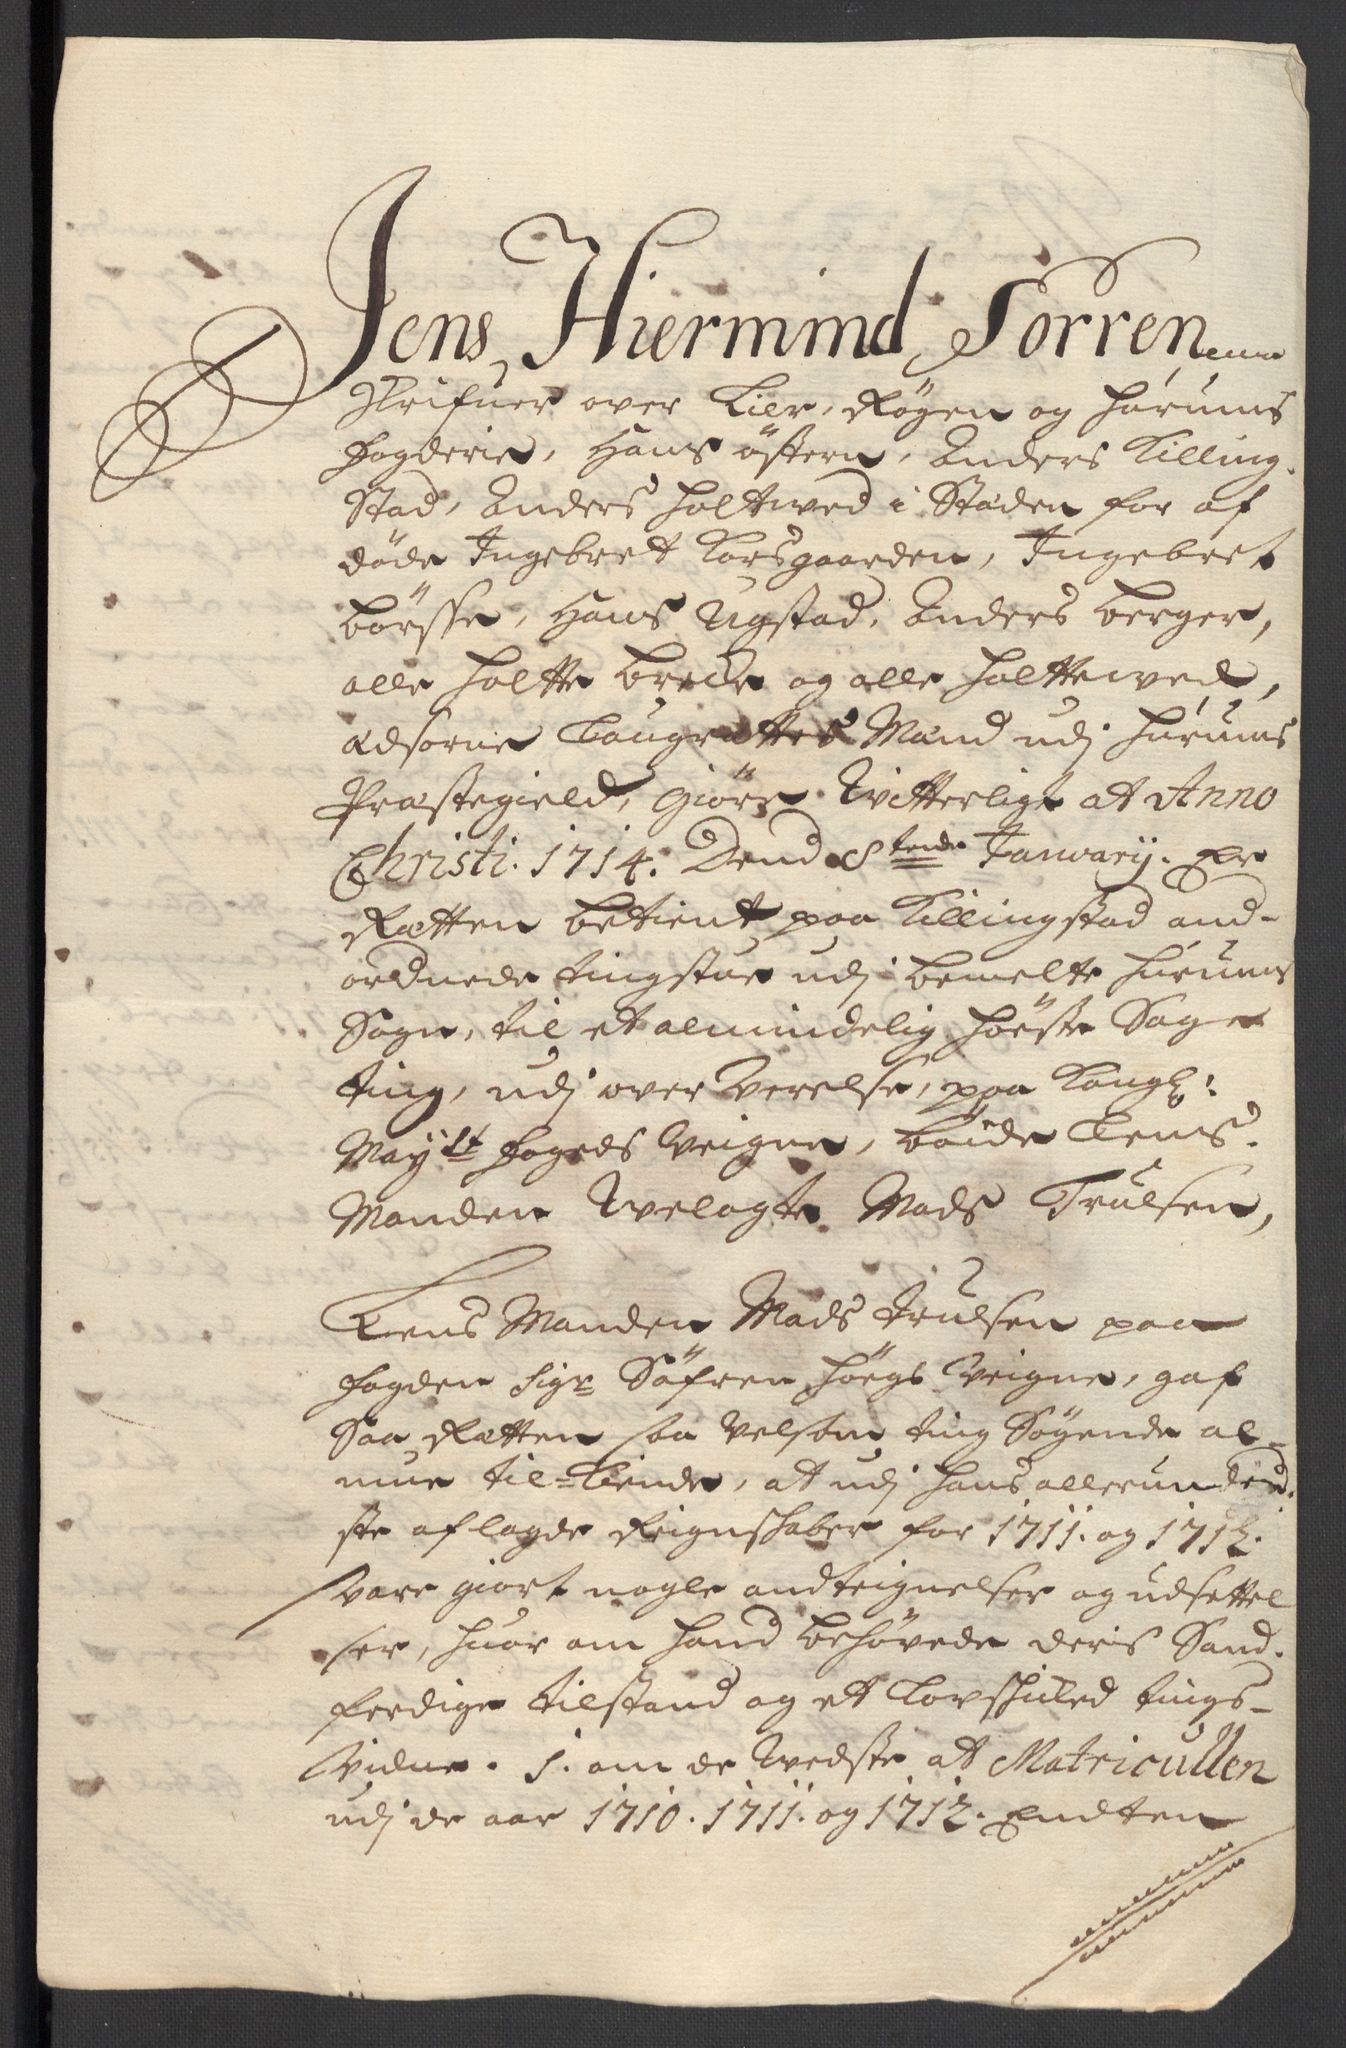 Jens Hiermind Sorren
Skrifuer over Lier, Røgen og Hurums
fogderie, Hans östern, Anders Killing-
stad, Anders Holtwed i Stæden for af
döde Ingebret Korsgaarden, Ingebret
börsse, Hans Ugstad, Anders berger,
olle Holtte brecke og olle Holtteweed,
Edsorne Laugrettes Mænd udj Hurums
Præstegield, giöre Witterligt at Anno
Christi. 1714. Dend 8tende January. Er
Retten betient paa Killingstad and-
ordnede tingstue udj bemelte Hurums
Sogn, til et almindelig höste Sage
ting, udj overværelse, paa Kongl:
Mayst fogeds Veigne, böide Lens-
Manden Welagte Mads Trulsen,
Lens Manden Mads Trulsen paa
fogden Sigr Söfren Höegs Veigne, gaf
Saa Retten saa Velsom ting Søgende al-
mue til-kiende, at udj hans allerunderd-
ste aflagde Reignskaber for 1711. og 1712.
vare giort nogle andteignelser og udsettel
ser, huor om hand behøvede deris Sand-
ferdige tilstand og et Lovskicked tings-
vidne. 1. om de Wedste at Matricullen
udj de aar 1710. 1711. og 1712. Endten